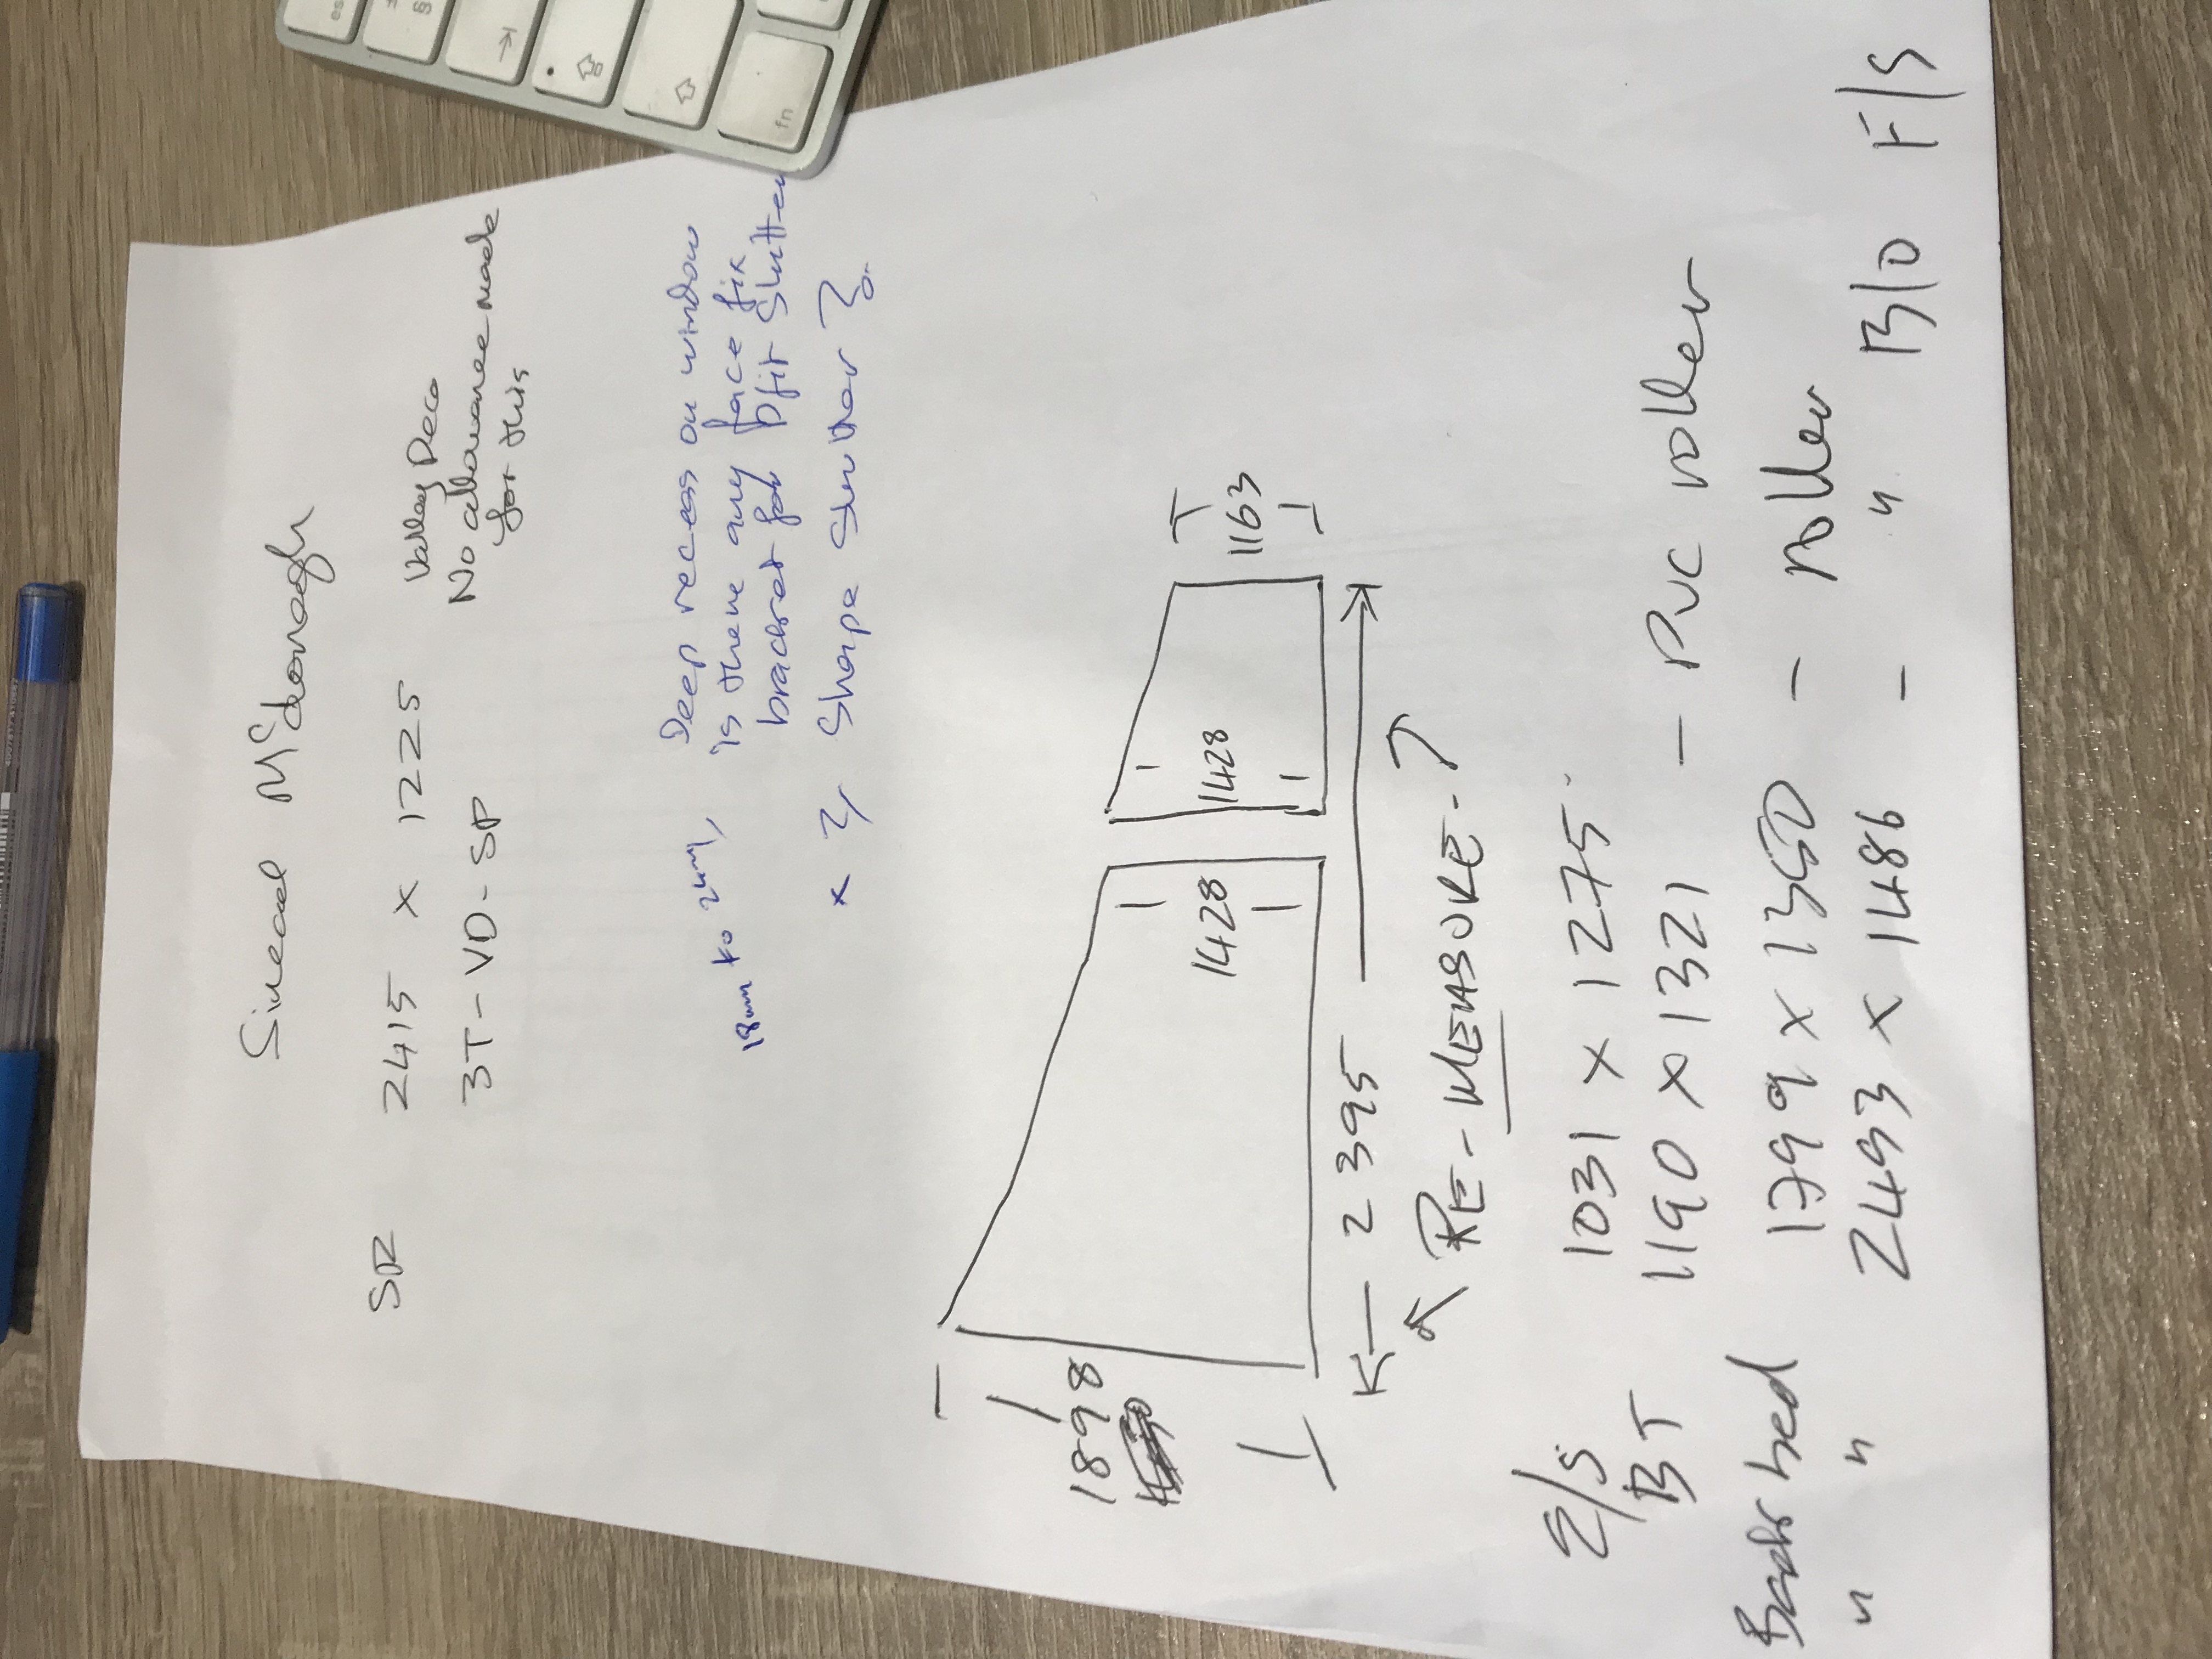 Sinead McDonagh
SR 2415 x 1225 Valley Deco
3T-VD-SP No allowance made
for this
Deep recess on window
18mm to 24mm, is there any face fix
bracket for pfit Shutter
x 2, Shape Shutter 3.
1898
1428
1428
1163
2395
RE-MEASURE-?
E/S 1031 x 1275
BT 1190 x 1321 - PVC roller
Back bed 1799 x 1350 - roller
" " 2493 x 1486 - " B/O F/S
fn